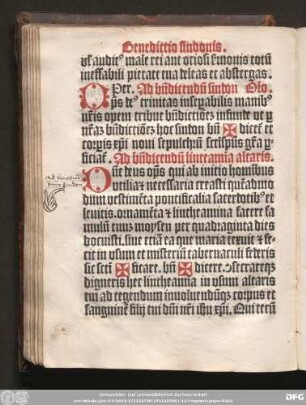 Benedictio sindonis.
vł audit' male rei aut ociosi ẜmonis totũ
ineffabili pietate tua deleas et abstergas.
Per. Ad bñdicendũ sindon Oło.
ps ds' trinitas inseparabilis manib'
nr̃is opem tribue bñdictiõez infunde ut p
nr̃az bñdictiõez hoc sindon bñ ✠ dicet' et
corpis xp̃i noui sepulchrũ
ficiat'. Ad bñdicendũ lintheamia altaris.
ne deus ops qui ab initio hominibus
vtilia et necessaria creasti quẽadmo
dum vestimẽta pontificalia sacerdotib' et
leuitis. ornamẽta et lintheamina facere fa
mulũ tuũ moysen per quadraginta dies
docuisti. siue etiã ea que maria texuit et fe
cit in vsum et misteriũ tabernaculi federis
sic scti ✠ ficare. bñ ✠ dicere.
digneris hec lintheamina in vsum altaris
tui ad tegendum inuoluendũqz corpus et
sanguinẽ filij tui dñi nr̃i ihũ xp̃i. Qui tecũ
DFG